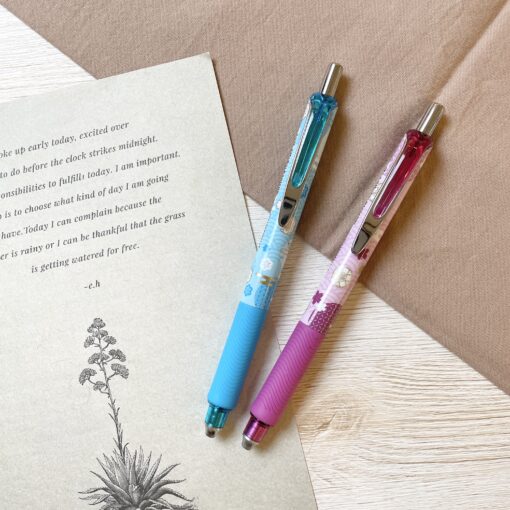 oke up early today, excited over
to do before the clock strikes midnight.
onsibilities to fulfill today. I am important.
o is to choose what kind of day I am going
have.Today I can complain because the
er is rainy or I can be thankful that the grass
is getting watered for free.
-e.h